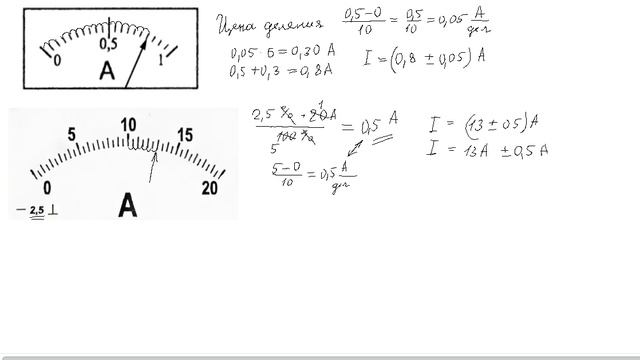 0 0,5 1
A
Цена деления (0,5-0)/10 = 0,5/10 = 0,05 А/дел
0,05 · 6 = 0,30 А
0,5 + 0,3 = 0,8 А
I = (0,8 ± 0,05) А
0 5 10 15 20
A
- 2,5 ⊥
(2,5 % · 20 А)/100 % = 0,5 А
1
5
(5-0)/10 = 0,5 А/дел
I = (13 ± 05) А
I = 13 А ± 0,5 А